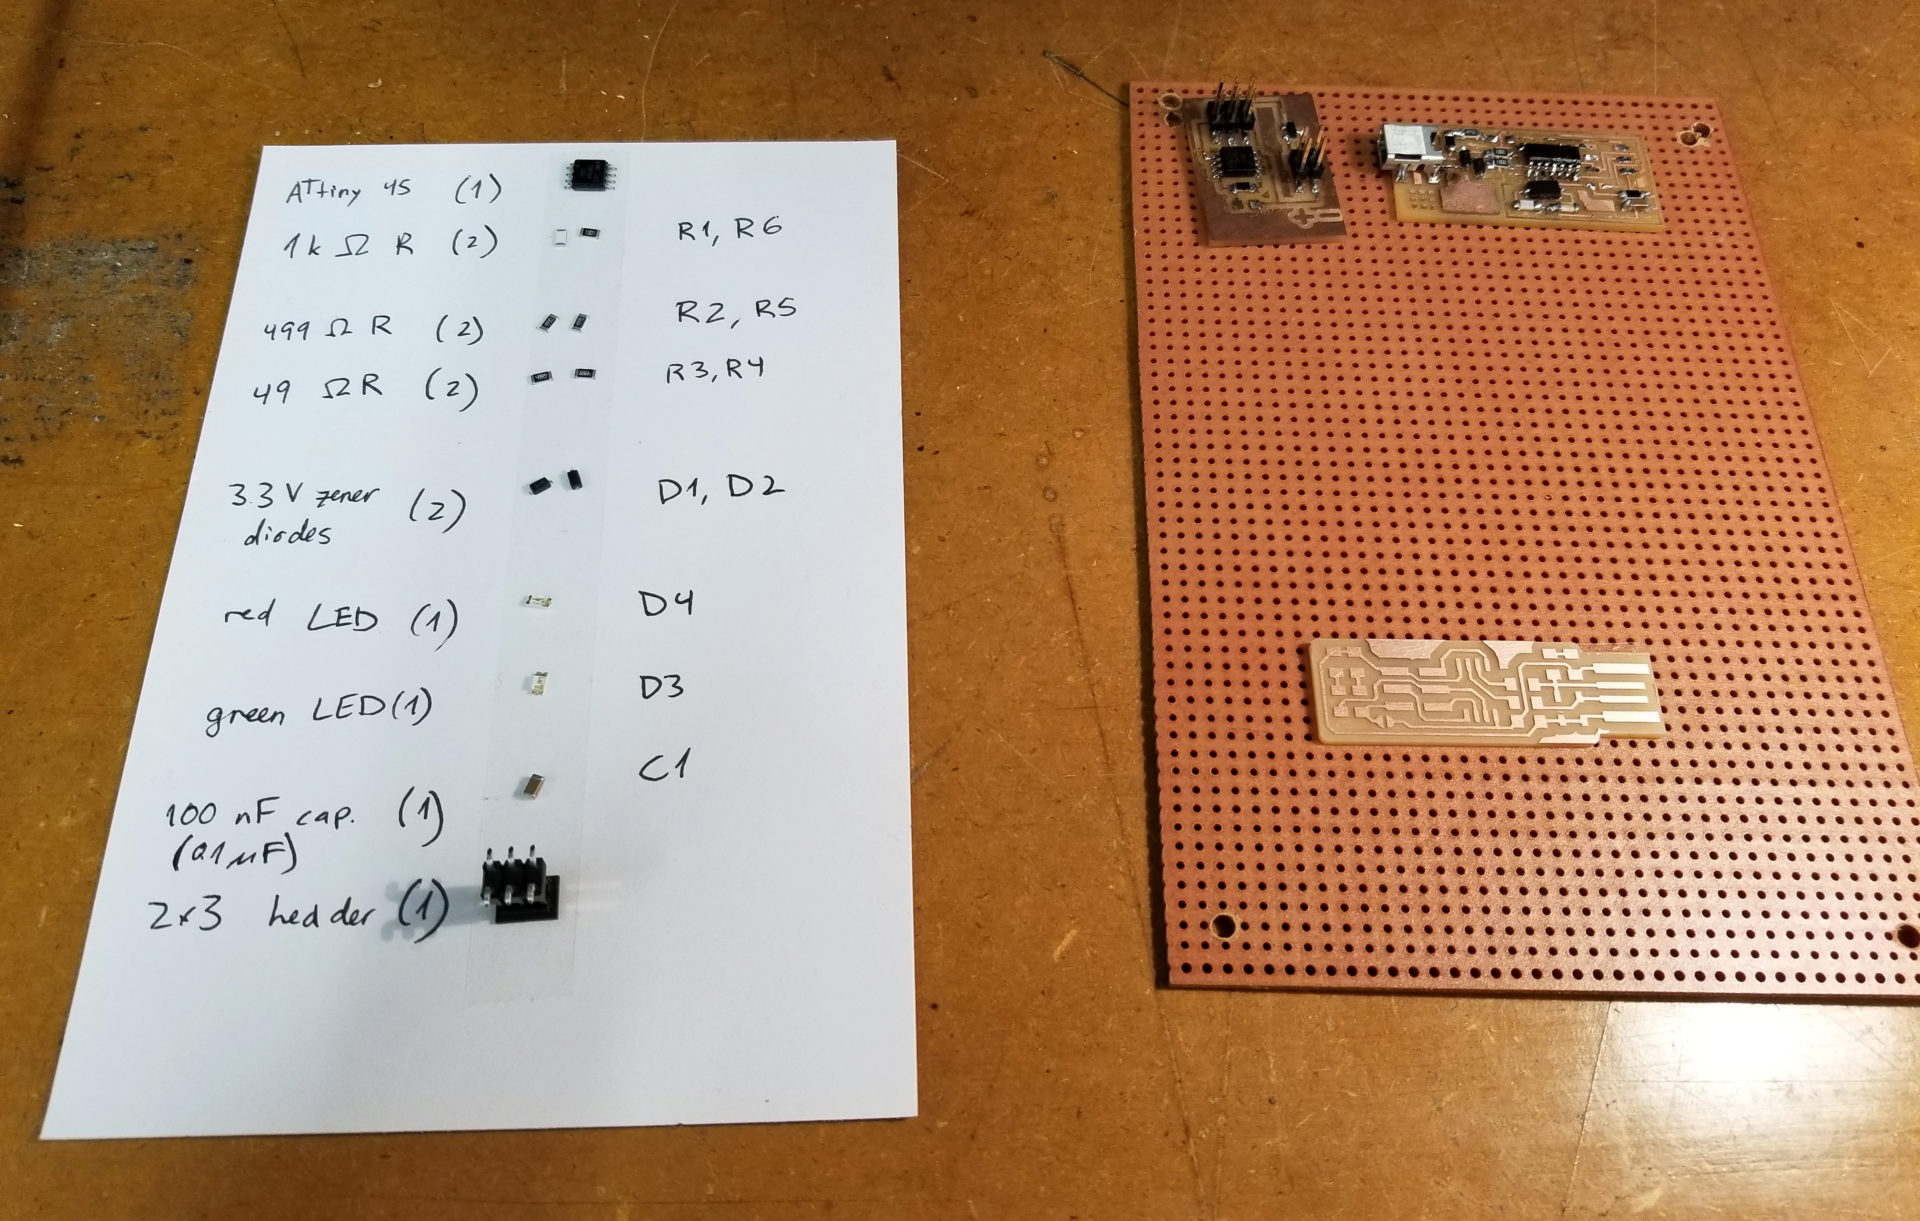 ATtiny 45 (1)
1k Ω R (2) R1, R6
499 Ω R (2) R2, R5
49 Ω R (2) R3, R4
3.3 V zener (2) D1, D2
diodes
red LED (1) D4
green LED (1) D3
100 nF cap. (1) C1
(0.1 μF)
2x3 hedder (1)